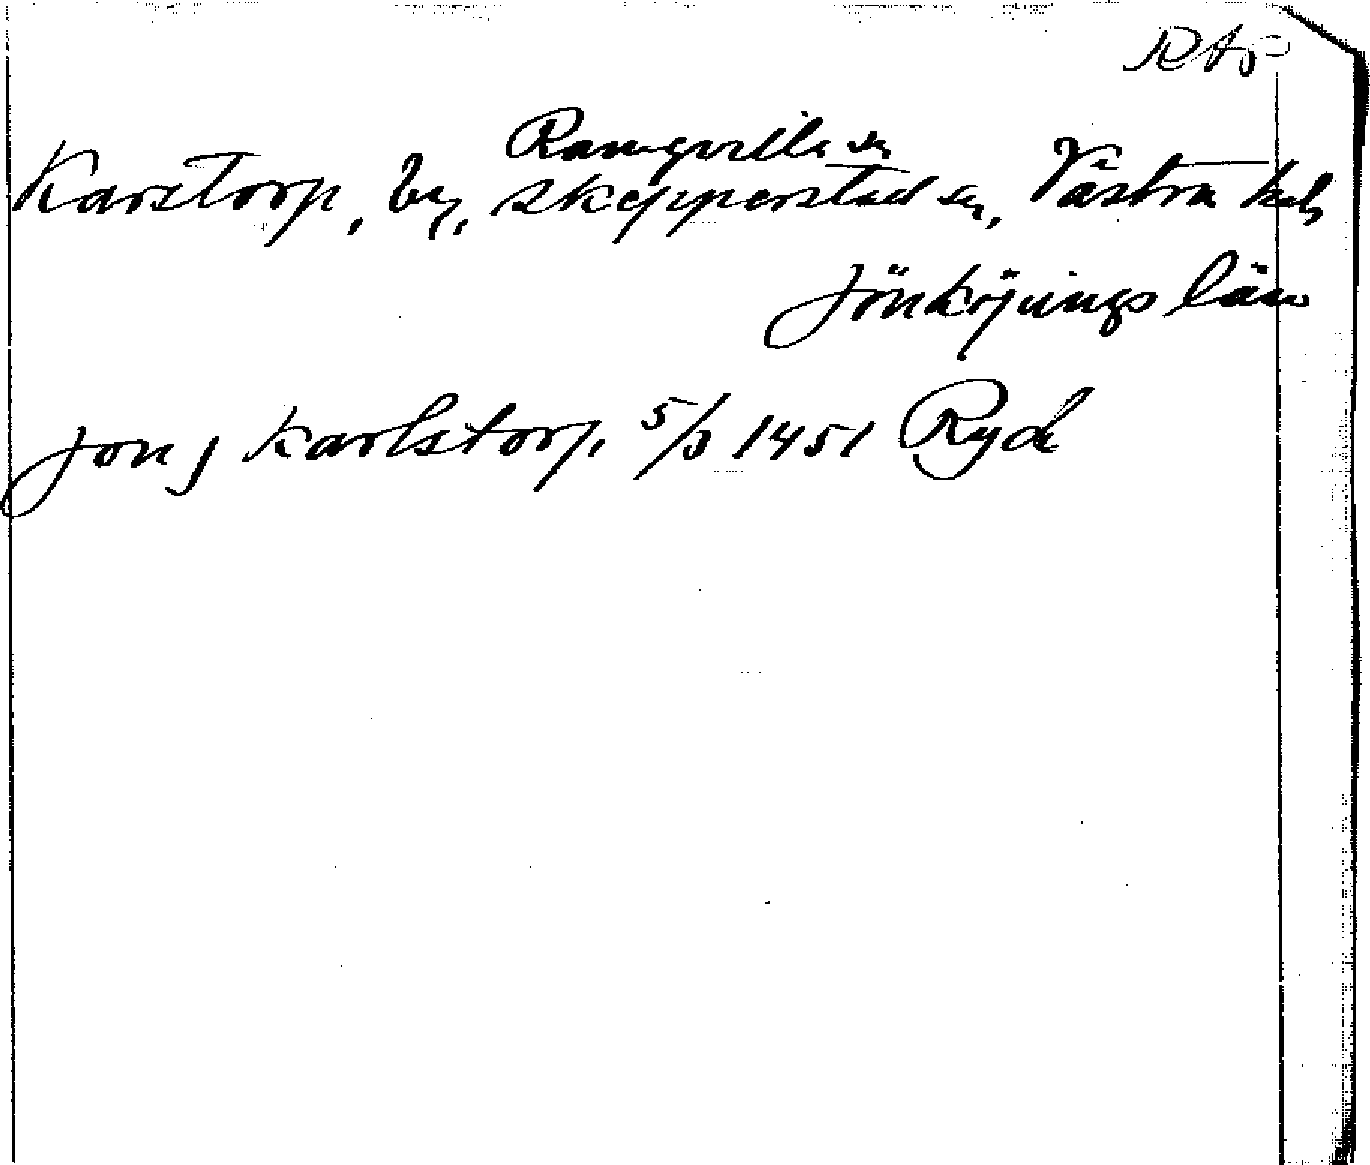 RAp
Ramqvilla sn
Karstorp, by, Skepperstad sn, Västra hd,
Jönköpings län
Jon j karlstorp. 5/3 1451 Ryd